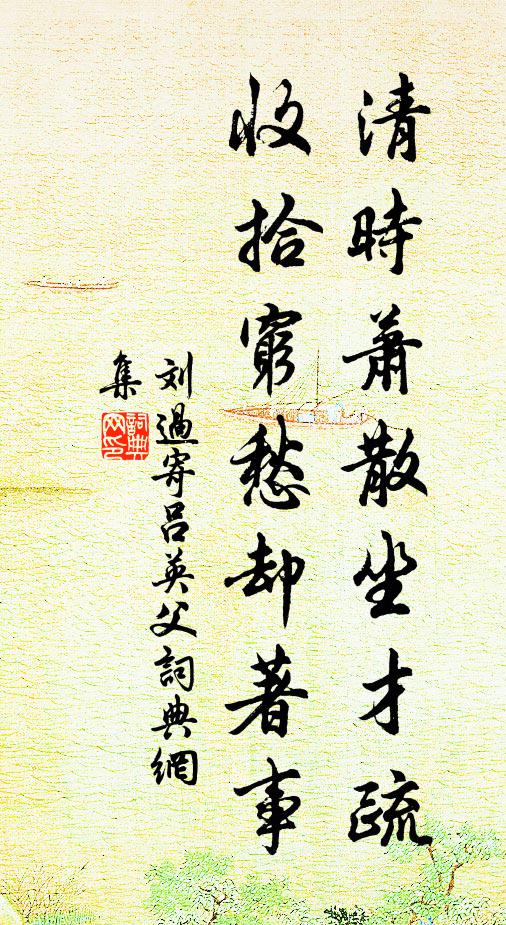 清時蕭散坐才疏
收拾窮愁却著事
刘過寄吕英父詞典網
集
詞典網印